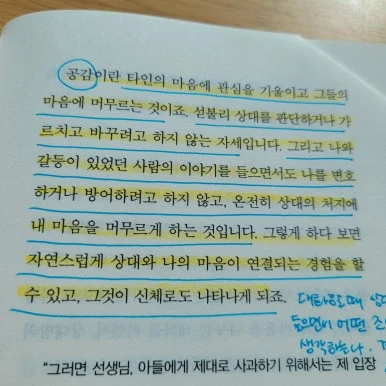 공감이란 타인의 마음에 관심을 기울이고 그들의
마음에 머무르는 것이죠. 섣불리 상대를 판단하거나 가
르치고 바꾸려고 하지 않는 자세입니다. 그리고 나와
갈등이 있었던 사람의 이야기를 들으면서도 나를 변호
하거나 방어하려고 하지 않고, 온전히 상대의 처지에
내 마음을 머무르게 하는 것입니다. 그렇게 하다 보면
자연스럽게 상대와 나의 마음이 연결되는 경험을 할
수 있고, 그것이 신체로도 나타나게 되죠.
대화할 때
들으면서 어떤
생각하는가.
"그러면 선생님, 아들에게 제대로 사과하기 위해서는 제 입장